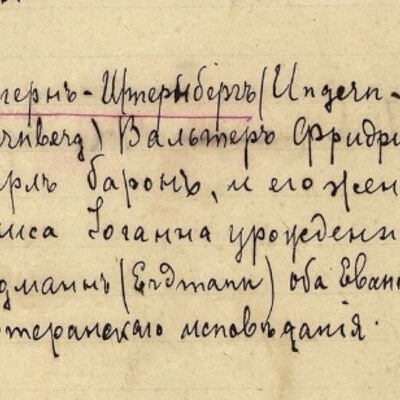 гернъ-Штернбергъ (Ungern-
rnberg) Вальтеръ Фридри
рлъ баронъ, и его жен
иса Іоганна урожденн
дманнъ (Erdmann) оба Еванг
теранскаго исповѣданія.